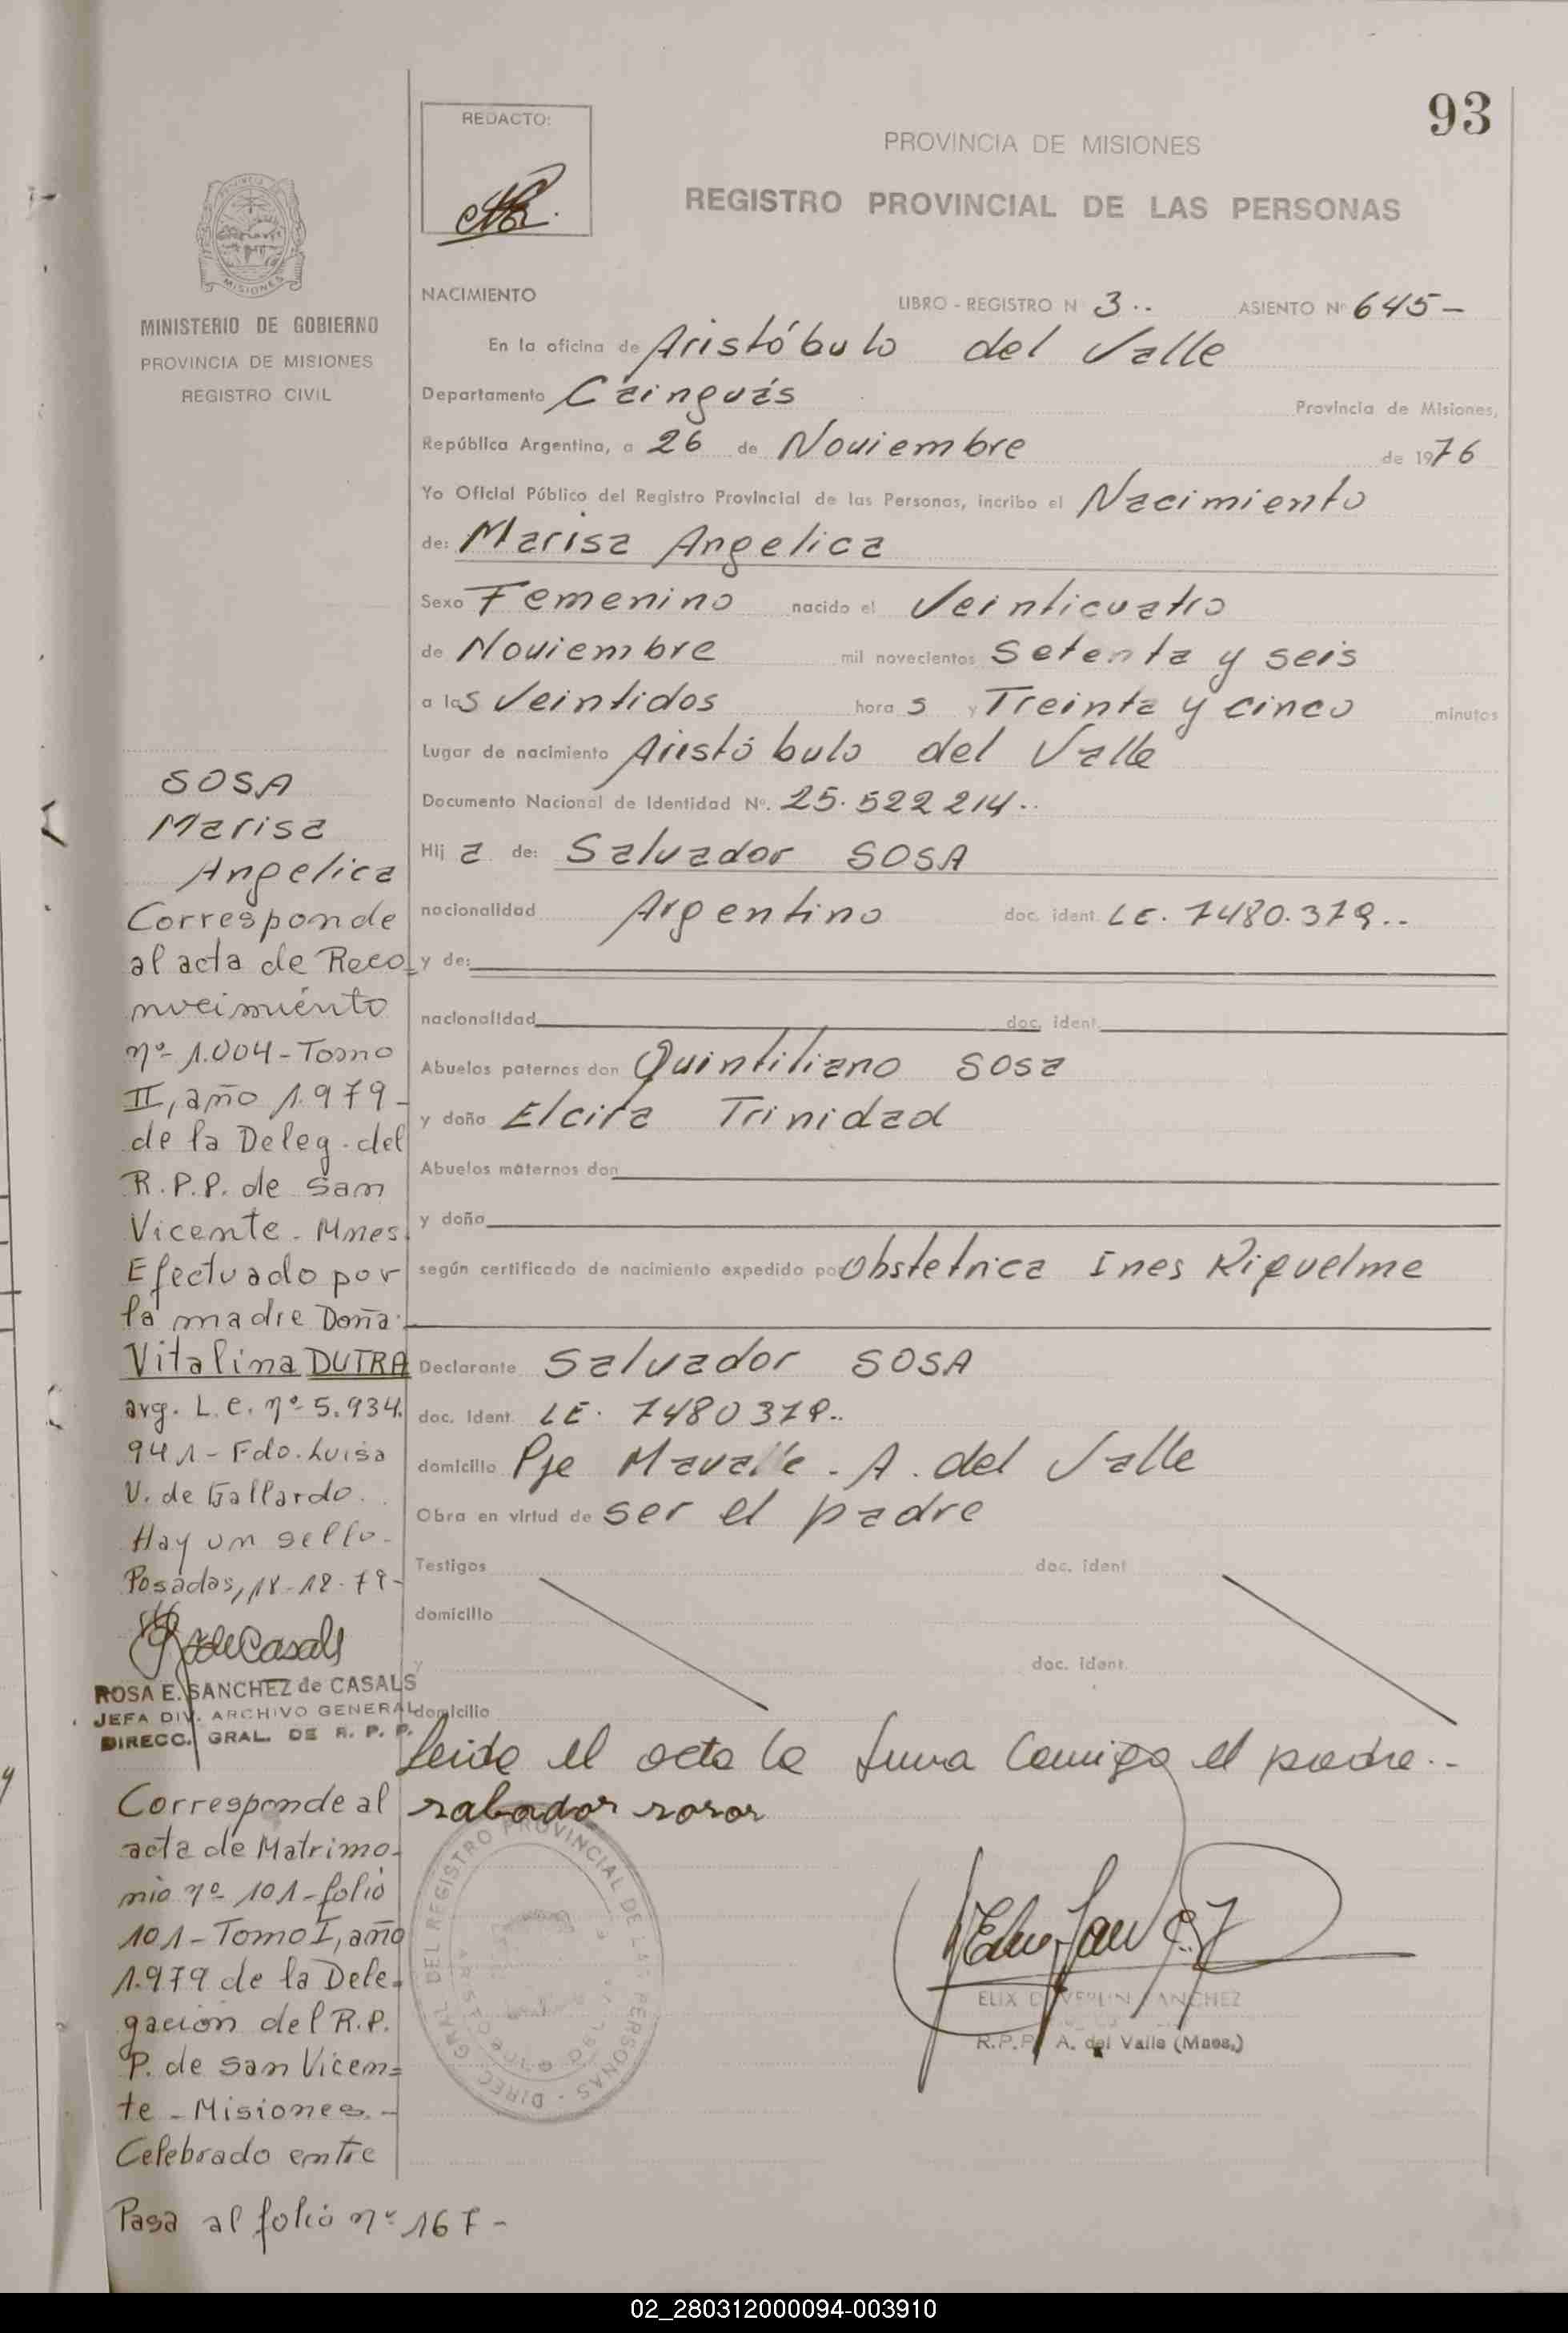 93
REDACTO:
PROVINCIA DE MISIONES
REGISTRO PROVINCIAL DE LAS PERSONAS
MISIONES
MINISTERIO DE GOBIERNO
PROVINCIA DE MISIONES
REGISTRO CIVIL
NACIMIENTO LIBRO - REGISTRO N 3.. ASIENTO Nº 645-
En la oficina de Aristóbulo del Valle
Departamento Cainguás Provincia de Misiones,
República Argentina, a 26 de Noviembre de 1976
Yo Oficial Público del Registro Provincial de las Personas, incribo el Nacimiento
de: Marisa Angelica
Sexo Femenino nacido el Veinticuatro
de Noviembre mil novecientos Setenta y seis
a las Veintidos horas y Treinta y cinco minutos
Lugar de nacimiento Aristóbulo del Valle
Documento Nacional de Identidad Nº. 25.522214..
Hija de: Salvador SOSA
nacionalidad Argentino doc. ident. LE. 7480.379..
y de:
nacionalidad doc. ident.
Abuelos paternos don Quintiliano Sosa
y doña Elcira Trinidad
Abuelos maternos don
y doña
según certificado de nacimiento expedido por Obstetrica Ines Riquelme
Declarante Salvador SOSA
doc. Ident. LE. 7480379..
domicilio Pje Mavalle - A. del Valle
Obra en virtud de ser el padre
Testigos doc. ident
domicilio
y doc. ident.
domicilio
Leida el acta la firma Comigo el padre..-
salvador sosa
DIREC. GRAL. DEL REGISTRO PROVINCIAL DE LAS PERSONAS
SANCHEZ
R.P.P. A. del Valle (Mnes.)
SOSA
Marisa
Angelica
Corresponde
al acta de Reco=
nocimiento
nº 1.004-Tomo
II, año 1.979-
de la Deleg. del
R.P.P. de San
Vicente - Mnes.
Efectuado por
la madre Doña:
Vitalina DUTRA
arg. L.e. nº 5.934.
941- Fdo. Luisa
V. de Gallardo.
Hay un sello-
Posadas, 18-12-79-
ROSA E. SANCHEZ de CASALS
JEFA DIV. ARCHIVO GENERAL
DIRECC. GRAL. DE R. P. P.
Corresponde al
acta de Matrimo-
nio nº 101-folio
101-Tomo I, año
1.979 de la Dele=
gación del R.P.
P. de San Vicen=
te - Misiones. -
Celebrado entre
Pasa al folio nº 167-
02_280312000094-003910